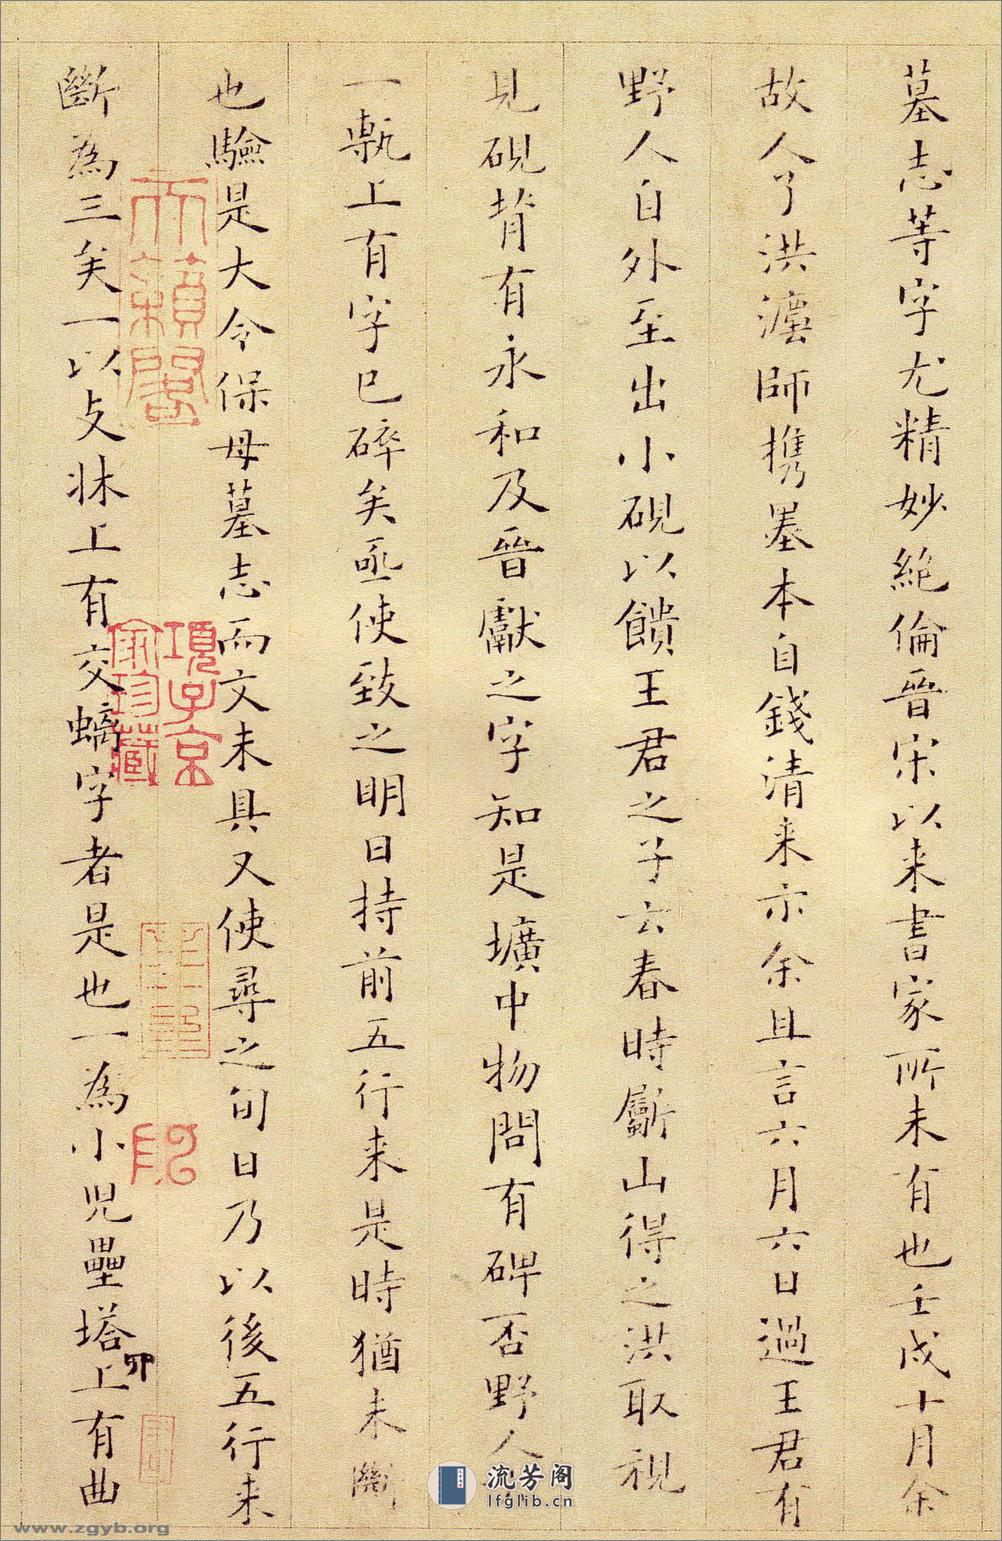 墓志等字尤精妙絶倫晉宋以来書家所未有也壬戌十月余
故人了洪瀍師携墨本自錢清来示余且言六月六日過王君有
野人自外至出小硯以饋王君之子云春時斸山得之洪取視
見硯背有永和及晉獻之字知是壙中物問有碑否野人
一甎上有字已碎矣亟使致之明日持前五行来是時猶未斷
也驗是大令保母墓志而文未具又使尋之旬日乃以後五行来
斷為三矣一以支牀上有交螭字者是也一為小児壘塔上有曲
天籟閣
項子京家珍藏
卯
流芳阁
lfglib.cn
www.zgyb.org